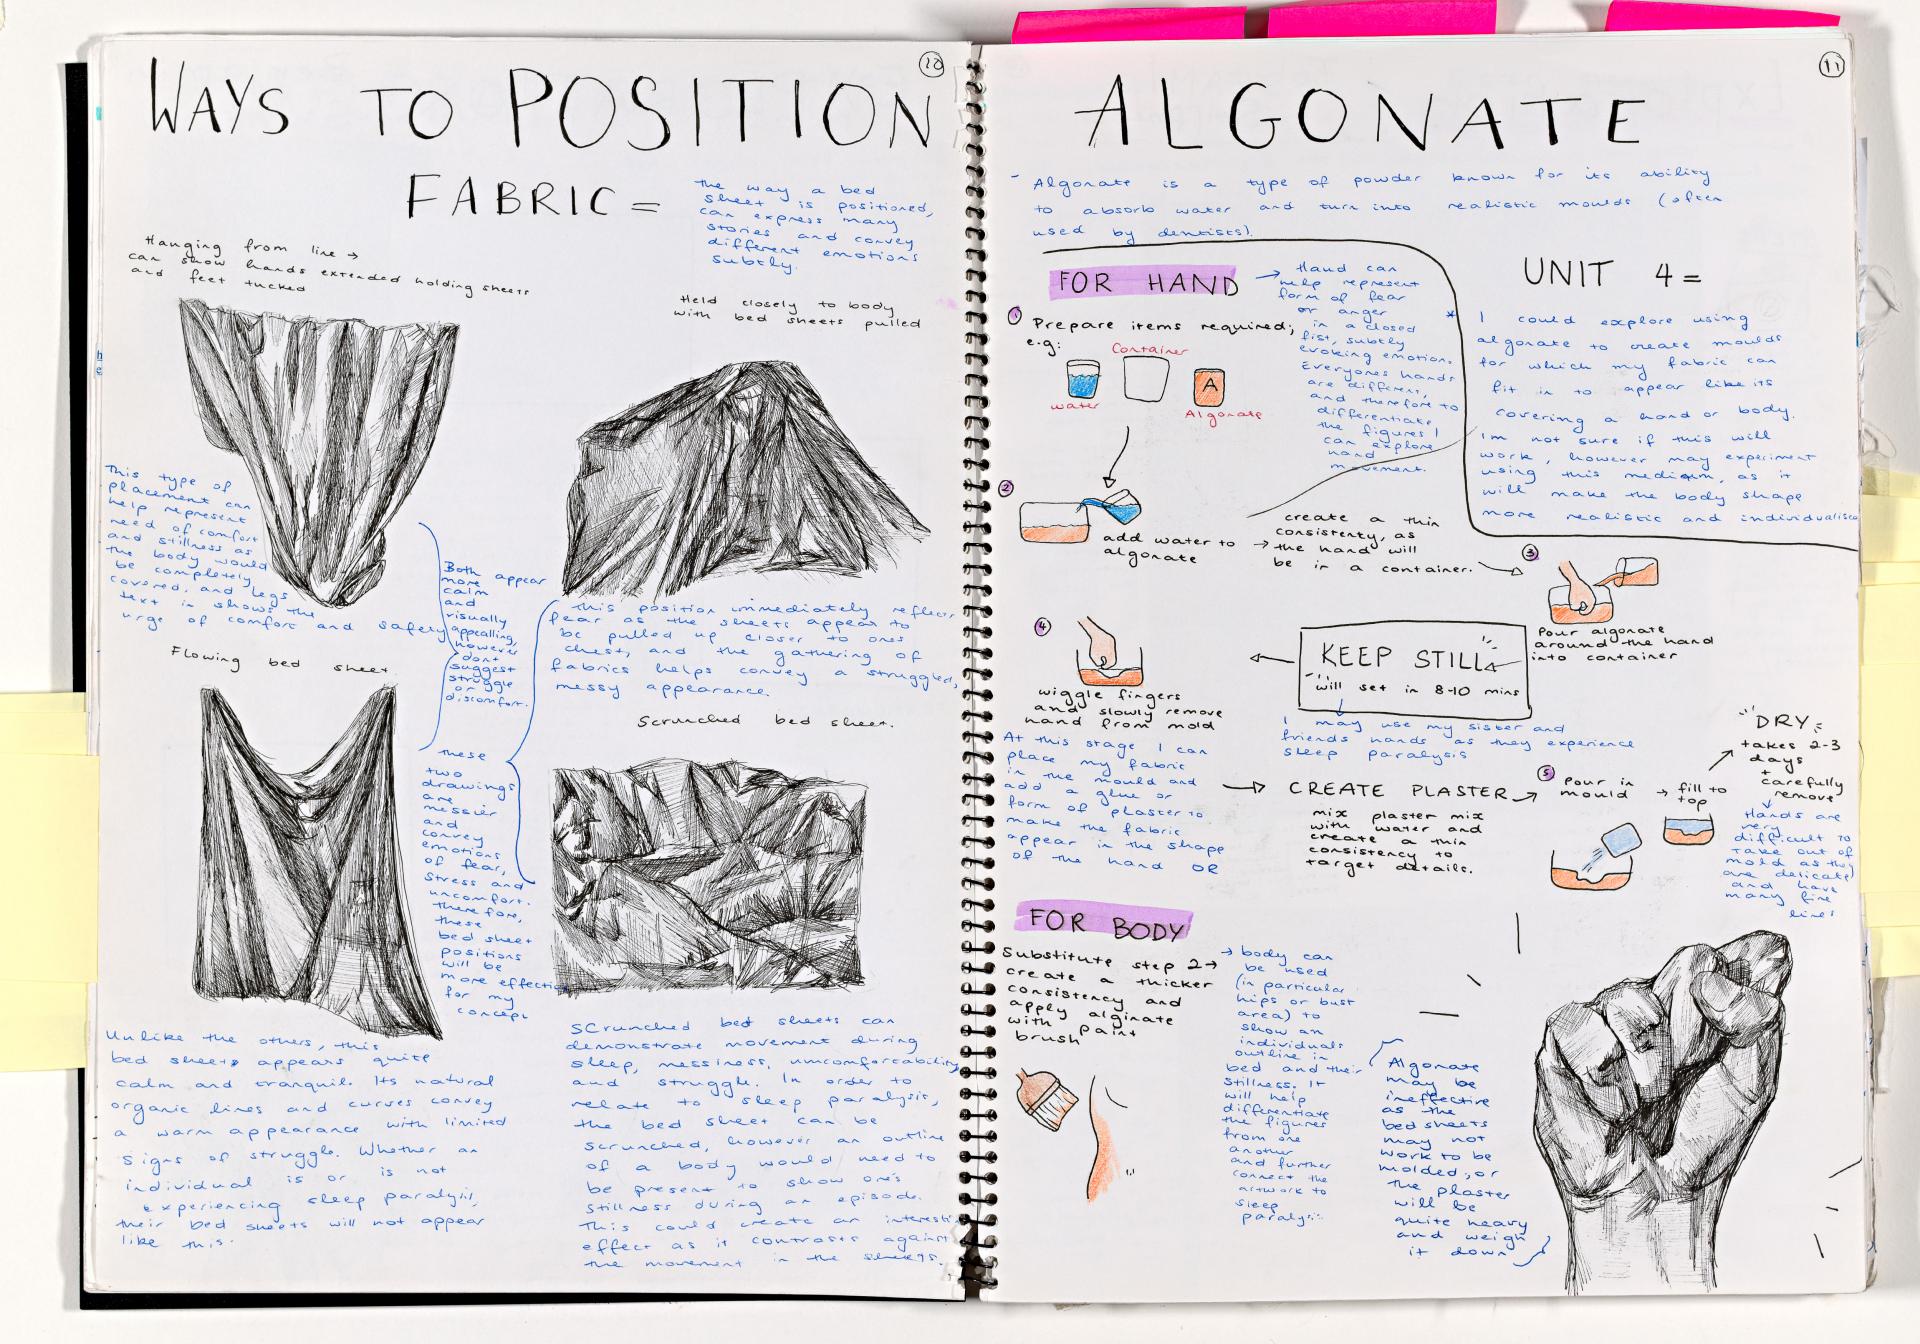 10
WAYS TO POSITION
FABRIC =
the way a bed
sheet is positioned,
can express many
stories and convey
different emotions
subtly.
Hanging from line →
can show hands extended holding sheets
and feet tucked
Held closely to body
with bed sheets pulled
This type of
placement can
help represent
need of comfort
and stillness as
the body would
be completely
covered, and legs
text in shows the
urge of comfort and safety
Both appear
more
calm
and
visually
appealling,
however
don't
suggest
struggle
or
discomfort.
This position immediately reflects
fear as the sheets appear to
be pulled up closer to ones
chest, and the gathering of
fabrics helps convey a struggled,
messy appearance.
Flowing bed sheet
Scrunched bed sheet.
these
two
drawings
are
messier
and
convey
emotions
of fear,
stress and
uncomfort.
therefore,
these
bed sheet
positions
will be
more effective
for my
concept
Unlike the others, this
bed sheets appears quite
calm and tranquil. Its natural
organic lines and curves convey
a warm appearance with limited
signs of struggle. Whether an
individual is or is not
experiencing sleep paralysis,
their bed sheets will not appear
like this.
Scrunched bed sheets can
demonstrate movement during
sleep, messiness, uncomfortability
and struggle. In order to
relate to sleep paralysis,
the bed sheet can be
scrunched, however an outline
of a body would need to
be present to show one's
stillness during an episode.
This could create an interesting
effect as it contrasts against
the movement in the sheets.
11
ALGONATE
- Algonate is a type of powder known for its ability
to absorb water and turn into realistic moulds (often
used by dentists).
FOR HAND
→ Hand can
help represent
form of fear
or anger
in a closed
fist, subtly
evoking emotion.
Everyones hands
are different,
and therefore to
differentiate
the figures I
can explore
hand
movement.
UNIT 4 =
* I could explore using
algonate to create moulds
for which my fabric can
fit in to appear like its
covering a hand or body.
im not sure if this will
work, however may experiment
using this medium, as it
will make the body shape
more realistic and individualised
1 Prepare items required;
e.g:
Container
water
A
Algonate
2
add water to
algonate
→ create a thin
consistenty, as
the hand will
be in a container.
3
Pour algonate
around the hand
into container
KEEP STILL
will set in 8-10 mins
I may use my sister and
friends hands as they experience
sleep paralysis
4
wiggle fingers
and slowly remove
hand from mold
At this stage I can
place my fabric
in the mould and
add a glue or
form of plaster to
make the fabric
appear in the shape
of the hand OR
→ CREATE PLASTER →
mix plaster mix
with water and
create a thin
consistency to
target details.
5 Pour in
mould
→ fill to
top
DRY
takes 2-3
days
+
carefully
remove
Hands are
very
difficult to
take out of
mold as they
are delicate
and have
many fine
lines
FOR BODY
Substitute step 2 →
create a thicker
consistency and
apply alginate
with paint
brush
→ body can
be used
(in particular
hips or bust
area) to
show an
individuals
outline in
bed and their
stillness. It
will help
differentiate
the figures
from one
another
and further
connect the
artwork to
sleep
paralysis.
Algonate
may be
ineffective
as the
bed sheets
may not
work to be
molded, or
the plaster
will be
quite heavy
and weigh
it down